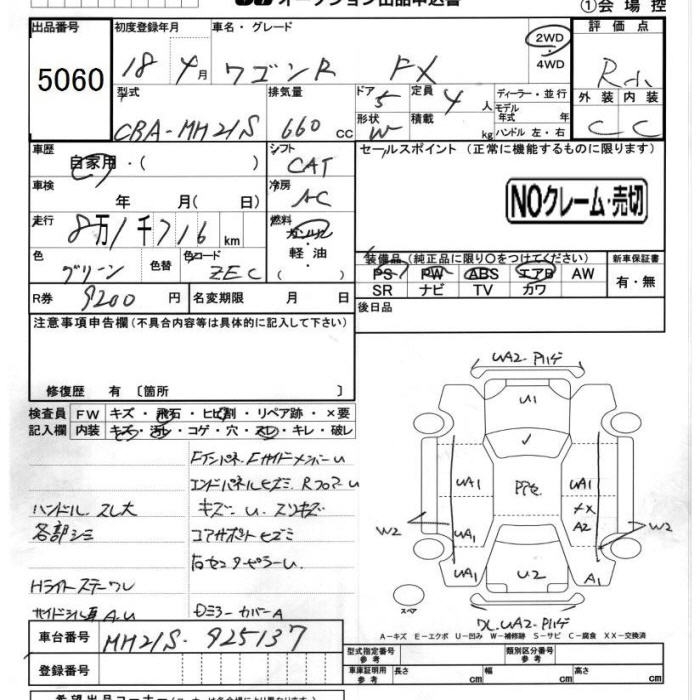 オークション出品申込書
①会場控
出品番号 初度登録年月 車名・グレード 2WD 評価点
5060 18年4月 ワゴンR FX ・4WD R
型式 排気量 ドア 5 定員 4人 ディーラー・並行 外装 内装
CBA-MH21S 660cc 形状 W 積載 kg モデル年式 年 ハンドル 左・右 C C
車歴 自家用・( ) シフト CAT セールスポイント (正常に機能するものに限ります)
車検 年 月( 日) 冷房 AC NOクレーム・売切
走行 8万1千716km 燃料 ガソリン
色 グリーン 色替 色コード ZEC 軽油 ( )
装備品(純正品に限り○をつけてください) 新車保証書
PS PW ABS エアB AW 有・無
SR ナビ TV カワ
R券 9200円 名変期限 月 日 後日品
注意事項申告欄(不具合内容等は具体的に記入して下さい)
修復歴 有 〔箇所 〕
検査員 FW キズ・飛石・ヒビ割・リペア跡・×要
記入欄 内装 キズ・汚れ・コゲ・穴・スレ・キレ・破レ
Fインパネ.FサイドメンバーU
エンドパネルヒズミ.RフロアーU
ハンドル.スレ大 キズ-U.スリキズ
各部シミ コアサポートヒズミ
右センターピラーU
Hライトステーワレ
A.U DミラーカバーA
UA2-P
U1
UA1 PPセ UA1
XX
W2 UA1 A2 W2
UA1 U2 A1
スペア
UA2-P
A-キズ E-エクボ U-凹み W-補修跡 S-サビ C-腐食 XX-交換済
車台番号 MH21S-925137
登録番号
型式指定番号 参考 類別区分番号 参考
車庫証明用 参考 長さ cm 幅 cm 高さ cm
希望出品コーナー